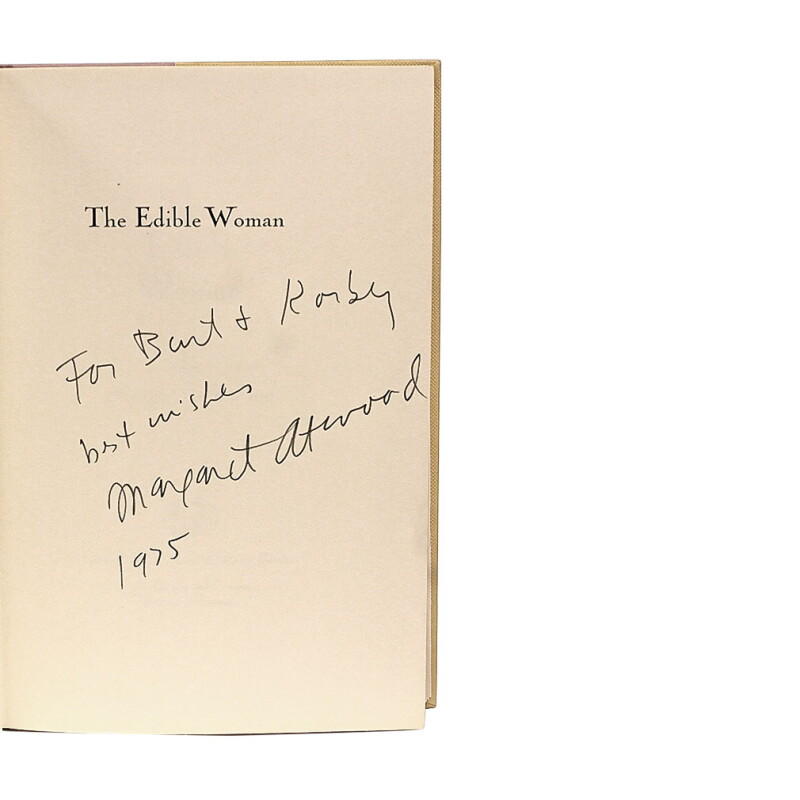 The Edible Woman
For Burt & Korby
best wishes
Margaret Atwood
1975